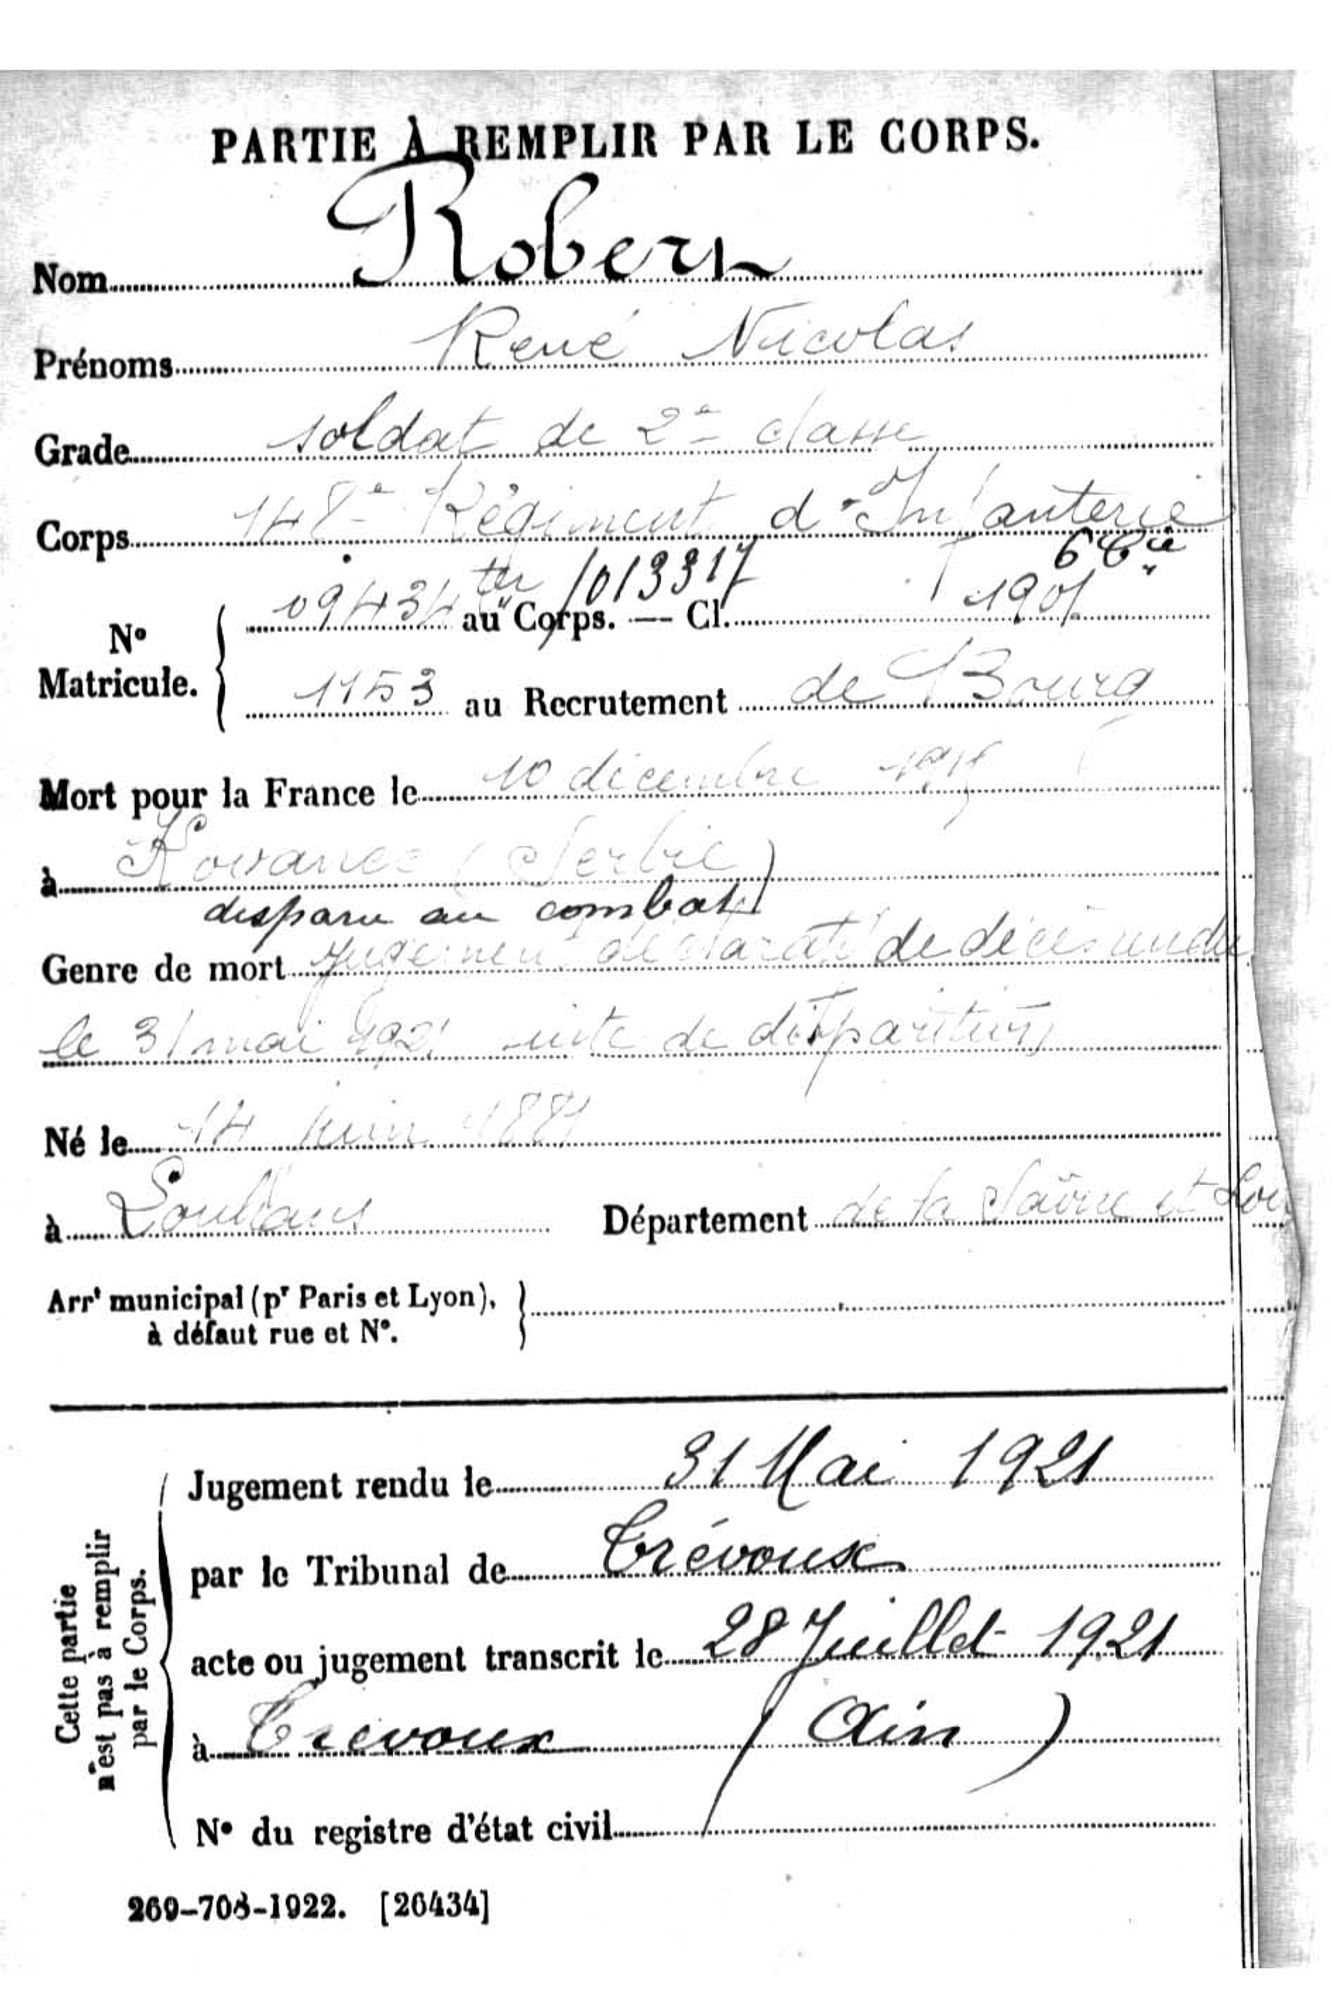 PARTIE À REMPLIR PAR LE CORPS.
Nom Robern
Prénoms René Nicolas
Grade soldat de 2e classe
Corps 148e Régiment d'Infanterie
6e Cie
09434 ter /013317
N° Matricule. au Corps. — Cl. 1901
1153 au Recrutement de Bourg
Mort pour la France le 10 décembre 1915
à (Serbie)
disparu au combat
Genre de mort jugement déclaratif de décès rendu
le 31 mai 1921 suite de disparition
Né le 14 juin 1881
à Louhans Département de la Saône et Loi
Arrt municipal (pr Paris et Lyon),
à défaut rue et N°.
Cette partie
n'est pas à remplir
par le Corps.
Jugement rendu le 31 Mai 1921
par le Tribunal de Trévoux
acte ou jugement transcrit le 28 Juillet 1921
à Trévoux (Ain)
N° du registre d'état civil
269-708-1922. [26434]